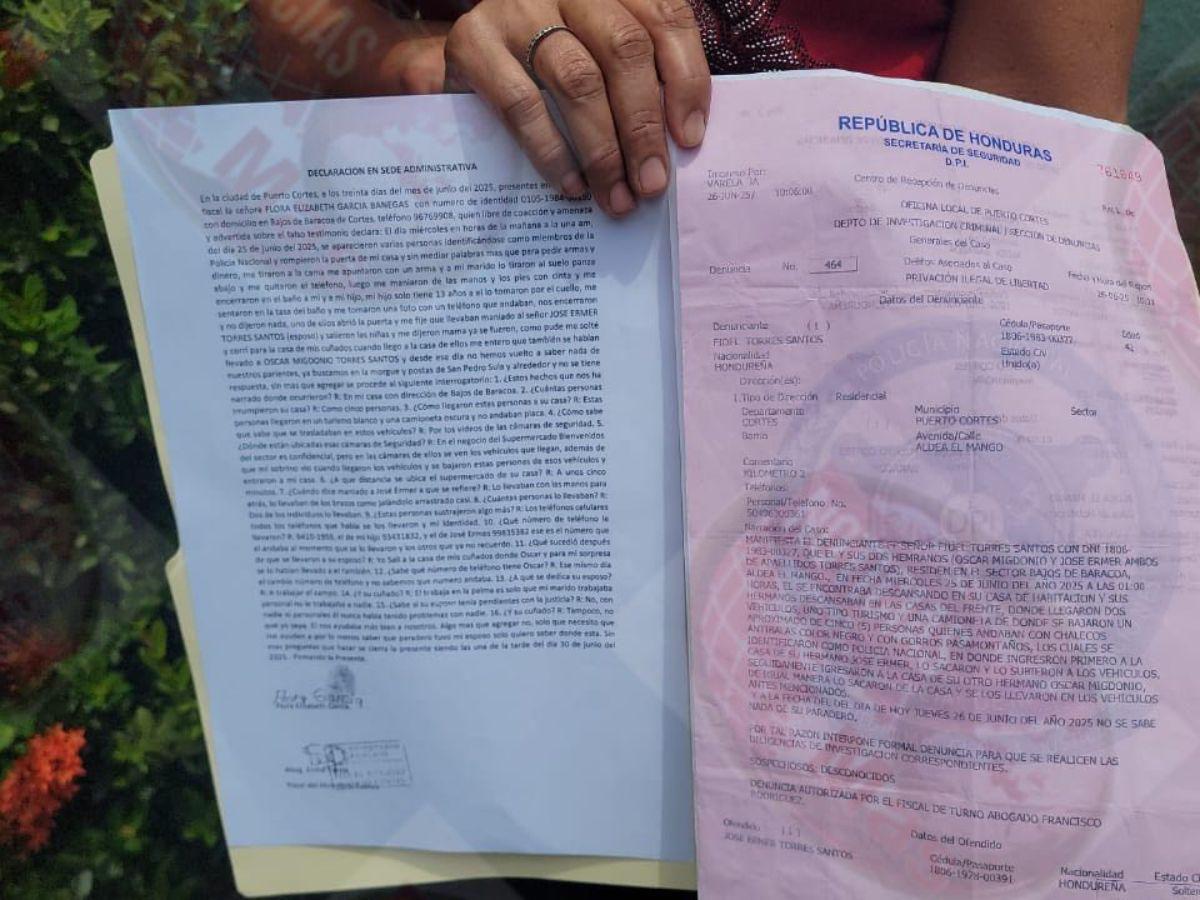 DECLARACION EN SEDE ADMINISTRATIVA
En la ciudad de Puerto Cortes, a los treinta días del mes de junio del 2025, presentes en
fiscal la señora FLORA ELIZABETH GARCIA BANEGAS con numero de identidad 0105-1984-
con domicilio en Bajos de Baracoa de Cortes, teléfono 96769908, quien libre de coacción y amenaza
y advertida sobre el falso testimonio declara: El día miércoles en horas de la mañana a la una am,
del día 25 de junio del 2025, se aparecieron varias personas identificándose como miembros de la
Policía Nacional y rompieron la puerta de mi casa y sin mediar palabras mas que para pedir armas y
dinero, me tiraron a la cama me apuntaron con un arma y a mi marido lo tiraron al suelo panza
abajo y me quitaron el telefono, luego me maniaron de las manos y los pies con cinta y me
encerraron en el baño a mi y a mi hijo, mi hijo solo tiene 13 años a el lo tomaron por el cuello, me
sentaron en la tasa del baño y me tomaron una foto con un teléfono que andaban, nos encerraron
y no dijeron nada, uno de ellos abrió la puerta y me fije que llevaban maniado al señor JOSE ERMER
TORRES SANTOS (esposo) y salieron las niñas y me dijeron mama ya se fueron, como pude me solté
y corrí para la casa de mis cuñados cuando llego a la casa de ellos me entero que también se habían
llevado a OSCAR MIGDONIO TORRES SANTOS y desde ese día no hemos vuelto a saber nada de
nuestros parientes, ya buscamos en la morgue y postas de San Pedro Sula y alrededor y no se tiene
respuesta, sin mas que agregar se procede al siguiente interrogatorio: 1. ¿Estos hechos que nos ha
narrado donde ocurrieron? R: En mi casa con dirección de Bajos de Baracoa. 2. ¿Cuántas personas
irrumpieron su casa? R: Como cinco personas. 3. ¿Cómo llegaron estas personas a su casa? R: Estas
personas llegaron en un turismo blanco y una camioneta oscura y no andaban placa. 4. ¿Cómo sabe
que sabe que se trasladaban en estos vehículos? R: Por los videos de las cámaras de seguridad. 5.
¿Dónde están ubicadas esas cámaras de Seguridad? R: En el negocio del Supermercado Bienvenidos
del sector es confidencial, pero en las cámaras de ellos se ven los vehículos que llegan, además de
que mi sobrino vio cuando llegaron los vehículos y se bajaron estas personas de esos vehículos y
entraron a mi casa. 6. ¿A que distancia se ubica el supermercado de su casa? R: A unos cinco
minutos. 7. ¿Cuándo dice maniado a José Ermer a que se refiere? R: Lo llevaban con las manos para
atrás, lo llevaban de los brazos como jalándolo arrastrado casi. 8. ¿Cuántas personas lo llevaban? R:
Dos de los individuos lo llevaban. 9. ¿Estas personas sustrajeron algo más? R: Los teléfonos celulares
todos los teléfonos que había se los llevaron y mi identidad. 10. ¿Qué número de teléfono le
llevaron? R. el de mi hijo 93431832, y el de José Ermer 99835382 ese es el número que
el andaba al momento que se lo llevaron y los otros que ya no recuerdo. 11. ¿Qué sucedió después
de que se llevaron a su esposo? R: Yo Salí a la casa de mis cuñados donde Oscar y para mi sorpresa
se lo habían llevado a el también. 12. ¿Sabe qué número de teléfono tiene Oscar? R: Ese mismo día
el cambio número de teléfono y no sabemos que numero andaba. 13. ¿A qué se dedica su esposo?
R: A trabajar el campo. 14. ¿Y su cuñado? R: El trabaja en la palma es solo que mi marido trabajaba
personal no le trabajaba a nadie. 15. ¿Sabe si su esposo tenía pendientes con la justicia? R: No, con
nadie ni personales él nunca había tenido problemas con nadie. 16. ¿Y su cuñado? R: Tampoco, no
que yo sepa. El nos ayudaba más bien a nosotros. Algo mas que agregar no, solo que necesito que
me ayuden a por lo menos saber que paradero tuvo mi esposo solo quiero saber donde esta. Sin
mas preguntas que hacer se cierra la presente siendo las una de la tarde del 30 de junio del
2025. Firmando la Presente.
Flora Elizabeth Garcia
REPÚBLICA DE HONDURAS
SECRETARÍA DE SEGURIDAD
D.P.I.
761849
Ingreso Por:
VARELA JA
26-JUN-25 10:06:00
Centro de Recepción de Denuncias
OFICINA LOCAL DE PUERTO CORTES
DEPTO DE INVESTIGACION CRIMINAL / SECCIÓN DE DENUNCIAS
Generales del Caso
Denuncia No. 464
Delitos Asociados al Caso
PRIVACIÓN ILEGAL DE LIBERTAD
Fecha y Hora del Report
26-06-25 10:11
Datos del Denunciante
Denunciante ( 1 )
FIDEL TORRES SANTOS
Cédula/Pasaporte
1806-1983-00327
Edad
42
Nacionalidad
HONDUREÑA
Estado Civ
Unido(a)
Dirección(es):
1.Tipo de Dirección Residencial
Departamento
CORTES
Municipio
PUERTO CORTES
Sector
Barrio
Avenida/Calle
ALDEA EL MANGO
Comentario
KILOMETRO 2
Teléfonos:
Personal/Telefono No.
50496300361
Narración del Caso:
MANIFIESTA EL DENUNCIANTE SEÑOR FIDEL TORRES SANTOS CON DNI 1806-
1983-00327, QUE EL Y SUS DOS HEMRANOS (OSCAR MIGDONIO Y JOSE ERMER AMBOS
DE APALLIDOS TORRES SANTOS), RESIDEN EN EL SECTOR BAJOS DE BARACOA,
ALDEA EL MANGO., EN FECHA MIERCOLES 25 DE JUNIO DEL AÑO 2025 A LAS 01:00
HORAS, EL SE ENCONTRABA DESCANSANDO EN SU CASA DE HABITACION Y SUS
HERMANOS DESCANSABAN EN LAS CASAS DEL FRENTE, DONDE LLEGARON DOS
VEHICULOS, UNO TIPO TURISMO Y UNA CAMIONETA DE DONDE SE BAJARON UN
APROXIMADO DE CINCO (5) PERSONAS QUIENES ANDABAN CON CHALECOS
ANTIBALAS COLOR NEGRO Y CON GORROS PASAMONTAÑOS, LOS CUALES SE
IDENTIFICARON COMO POLICIA NACIONAL, EN DONDE INGRESRON PRIMERO A LA
CASA DE SU HERMANO JOSE ERMER, LO SACARON Y LO SUBIERON A LOS VEHICULOS,
SEGUIDAMENTE IGRESARON A LA CASA DE SU OTRO HERMANO OSCAR MIGDONIO,
DE IGUAL MANERA LO SACARON DE LA CASA Y SE LOS LLEVARON EN LOS VEHICULOS
ANTES MENCIONADOS.
Y A LA FECHA DEL DEL DIA DE HOY JUEVES 26 DE JUNIO DEL AÑO 2025 NO SE SABE
NADA DE SU PARADERO.
POR TAL RAZON INTERPONE FORMAL DENUNCIA PARA QUE SE REALICEN LAS
DILIGENCIAS DE INVESTIGACION CORRESPONDIENTES.
SOSPECHOSOS: DESCONOCIDOS
DENUNCIA AUTORIZADA POR EL FISCAL DE TURNO ABOGADO FRANCISCO
RODRIGUEZ.
Ofendido ( 1 )
JOSE ERMER TORRES SANTOS
Datos del Ofendido
Cédula/Pasaporte
1806-1978-00391
Nacionalidad
HONDUREÑA
Estado C
Solter